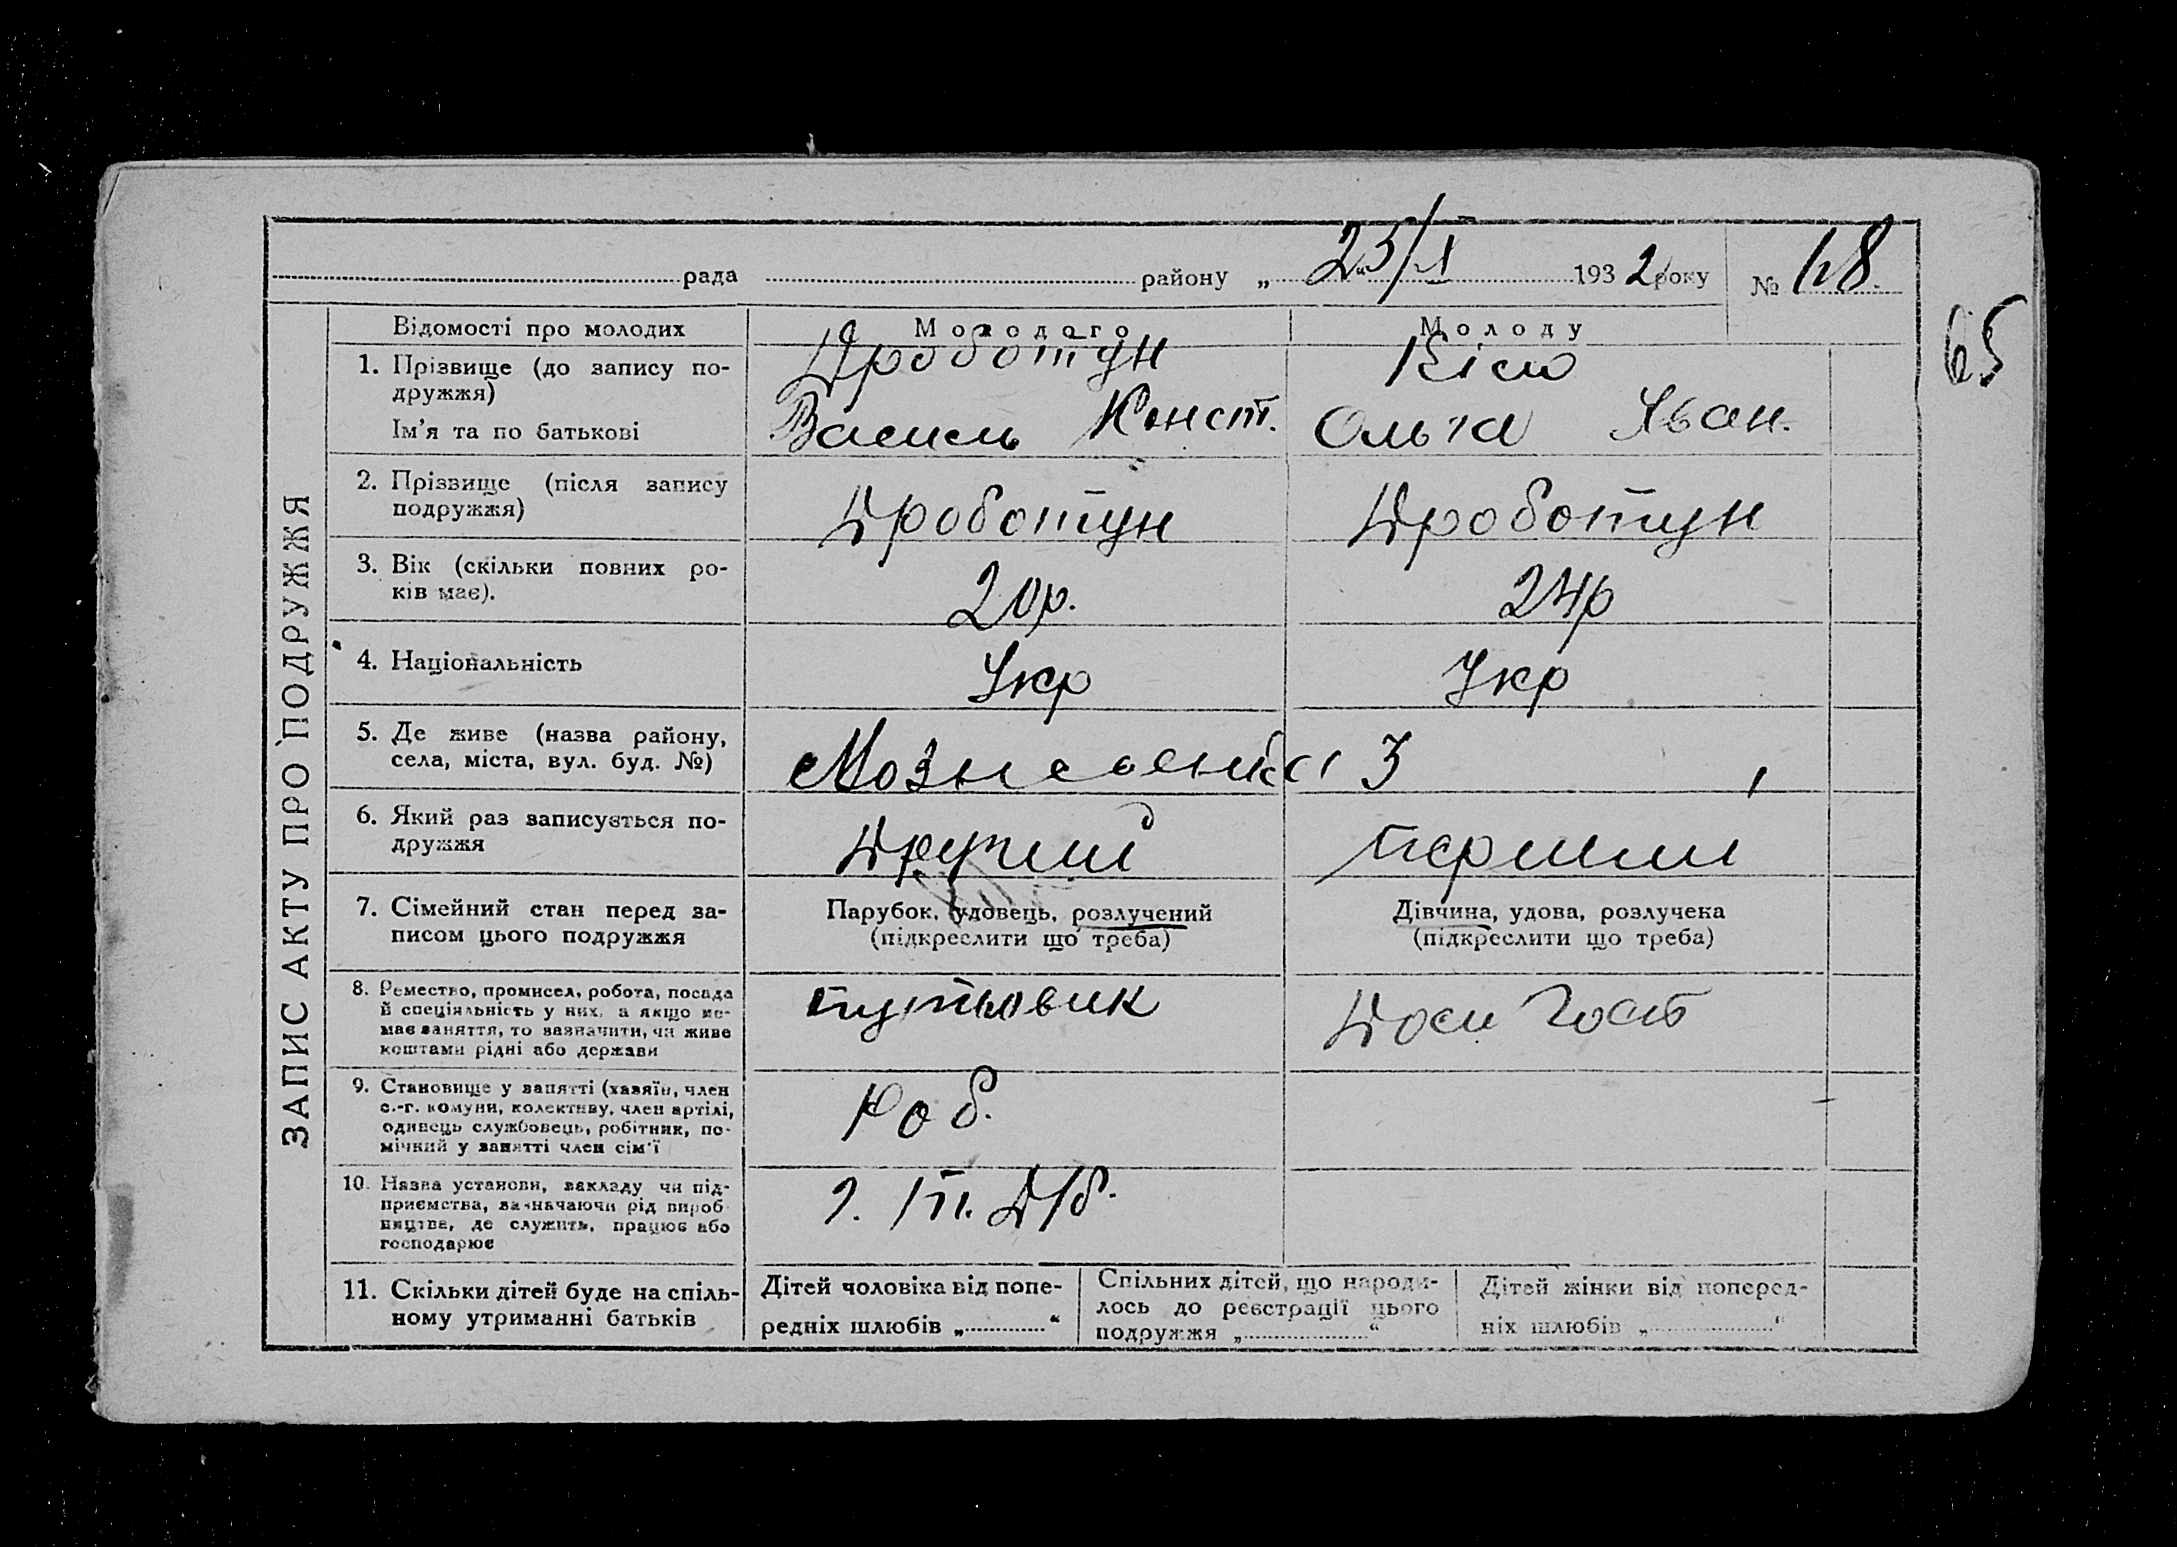 рада району „ 25/X 1932 року № 68
65
ЗАПИС АКТУ ПРО ПОДРУЖЖЯ
Відомості про молодих Молодого Молоду
1. Прізвище (до запису по-
дружжя)
Дроботун
Ім'я та по батькові Василь Конст. Ольга Іван.
2. Прізвище (після запису
подружжя)
Дроботун Дроботун
3. Вік (скільки повних ро-
ків має).
20р. 24р
4. Національність Укр Укр
5. Де живе (назва району,
села, міста, вул. буд. №)
3
6. Який раз записується по-
дружжя
Другий Перший
7. Сімейний стан перед за-
писом цього подружжя
Парубок, удовець, розлучений
(підкреслити що треба)
Дівчина, удова, розлучека
(підкреслити що треба)
8. Ремество, промисел, робота, посада
й спеціяльність у них, а якщо не-
має заняття, то зазначити, чи живе
коштами рідні або держави
путьовик Дом Госп
9. Становище у занятті (хазяїн, член
с.-г. комуни, колективу, член артілі,
одинець службовець, робітник, по-
мічний у занятті член сім'ї
Роб.
10. Назва установи, закладу чи під-
приємства, зазначаючи рід вироб-
ництва, де служить, працює або
господарює
11. Скільки дітей буде на спіль-
ному утриманні батьків
Дітей чоловіка від попе-
редніх шлюбів „ “
Спільних дітей, що народи-
лось до реєстрації цього
подружжя „ “
Дітей жінки від поперед-
ніх шлюбів „ “